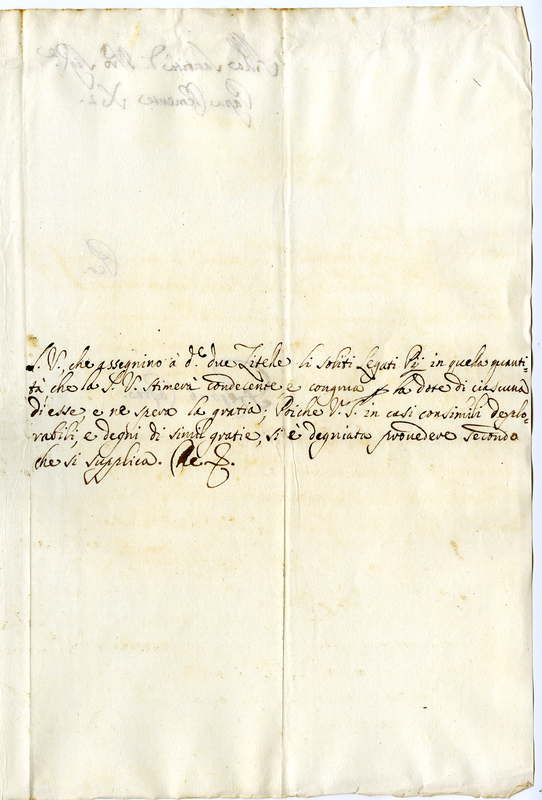 S. V., che assegnino à d.e due Zitelle li soliti legati Pij in quella quanti-
tà che la S. V. stimerà condecente e congrua p la dote di ciascuna
di esse, e ne spera la gratia; Poiche V. S. in casi consimili deplo-
rabili, e degni di simili gratie, si è degniata prouedere secondo
che si supplica. Che